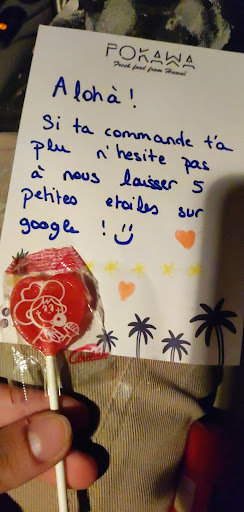 POKAWA
Fresh food from Hawaï
Alohà !
Si ta commande t'a
plu n'hesite pas
à nous laisser 5
petites etoiles sur
google ! :)